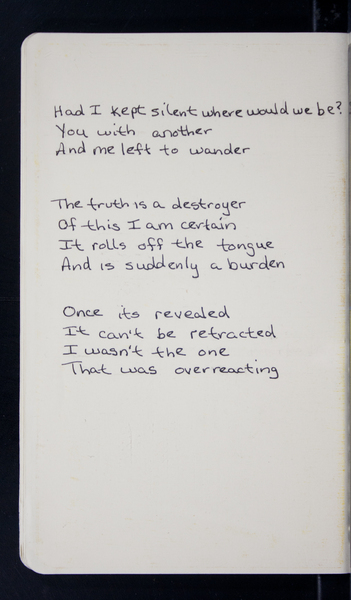 Had I kept silent where would we be?
You with another
And me left to wander
The truth is a destroyer
Of this I am certain
It rolls off the tongue
And is suddenly a burden
Once its revealed
It can't be retracted
I wasn't the one
That was overreacting